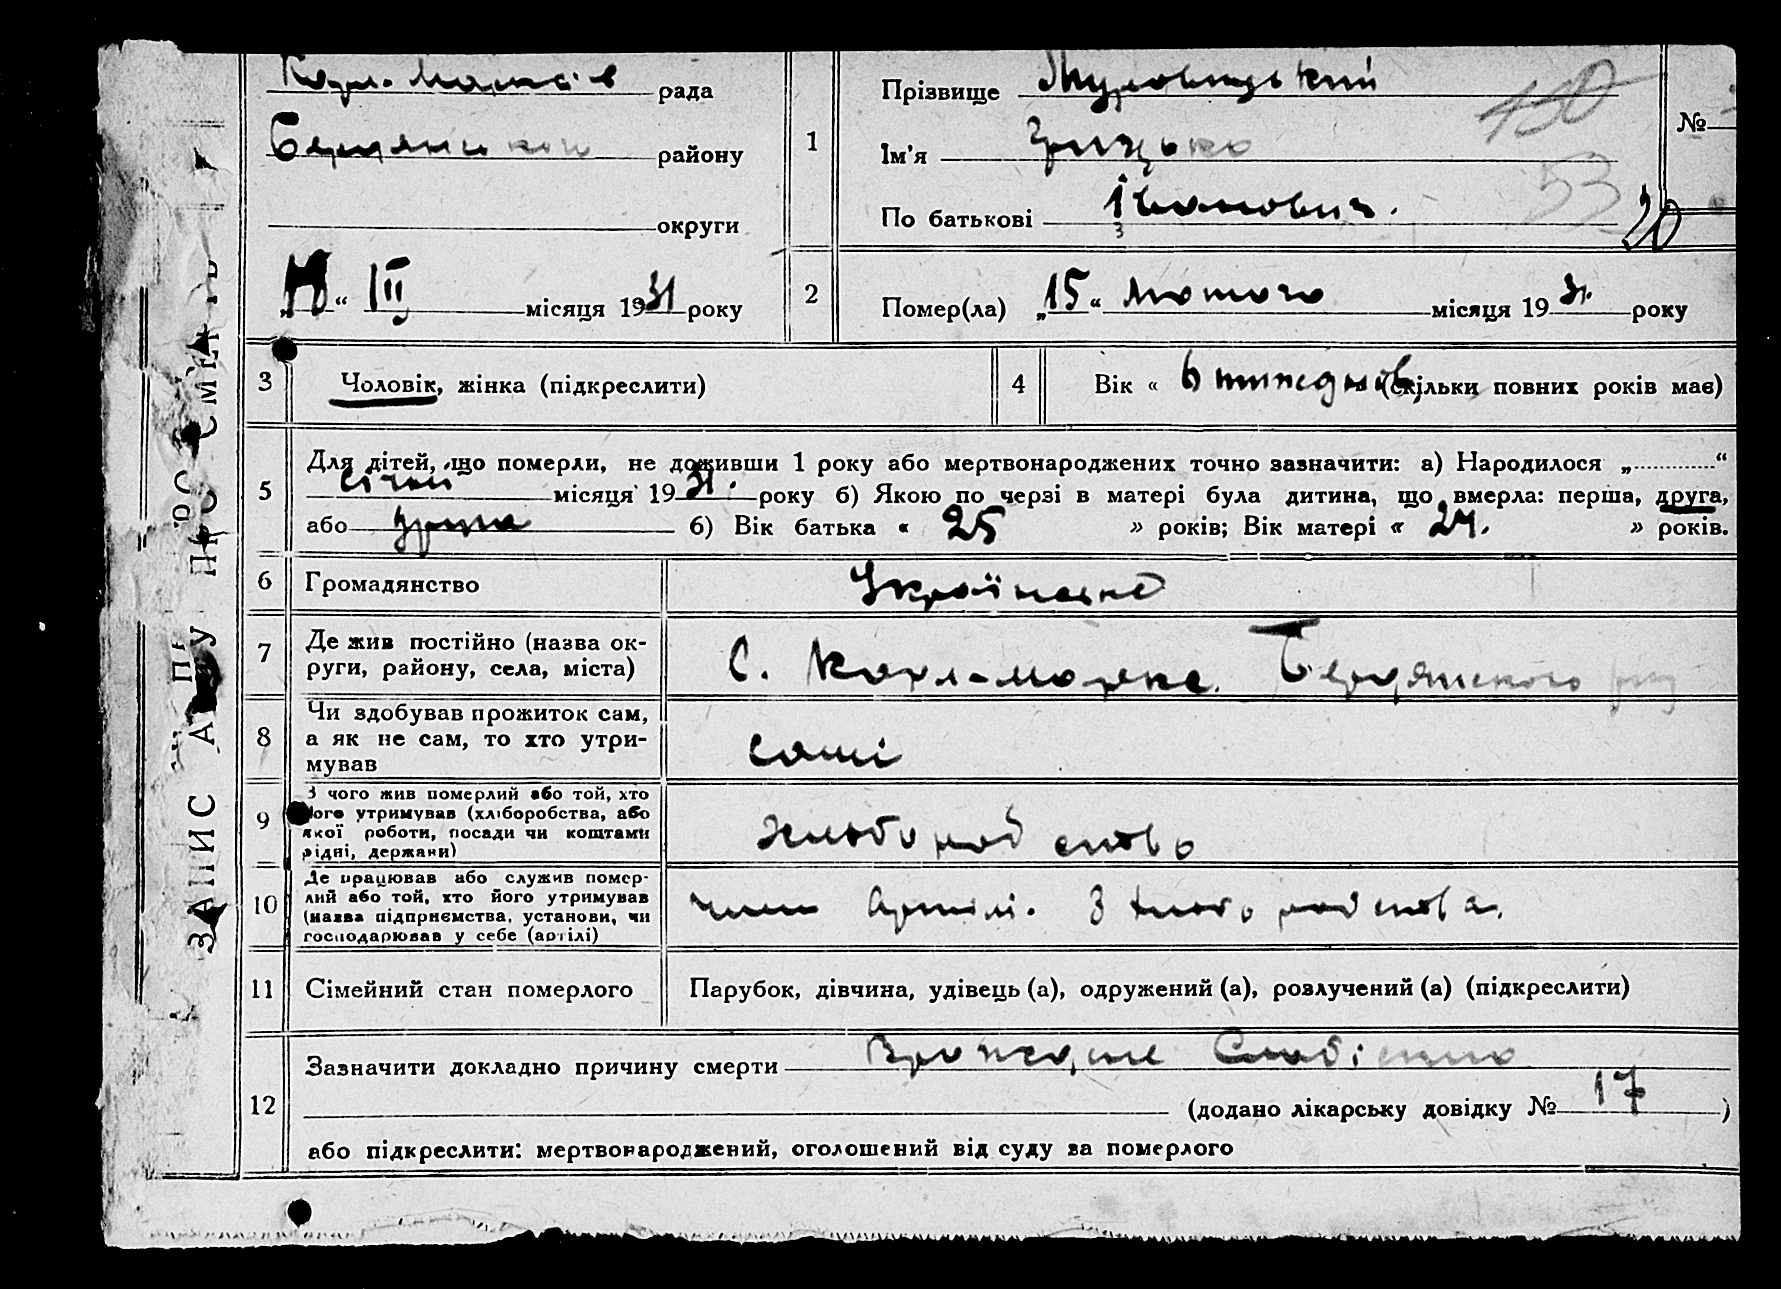 Карл-Марксів рада
Бердянської району
округи
„ “ III місяця 1931 року
ЗАПИС АКТУ ПРО СМЕРТЬ
№
1 Прізвище
Ім'я Грицько
По батькові Іванович.
150
53
20
2 Помер(ла) „15“ лютого місяця 1931. року
3 Чоловік, жінка (підкреслити)
4 Вік « 6 тижднів (скільки повних років має)
5 Для дітей, що померли, не доживши 1 року або мертвонароджених точно зазначити: а) Народилося „ “
січня місяця 1931. року б) Якою по черзі в матері була дитина, що вмерла: перша, друга,
або друга б) Вік батька « 25 » років; Вік матері « 24. » років.
6 Громадянство Українське
7 Де жив постійно (назва ок-
руги, району, села, міста) С. Карл-Маркс. Бердянського рну
8 Чи здобував прожиток сам,
а як не сам, то хто утри-
мував самі
9 З чого жив померлий або той, хто
його утримував (хліборобства, або
якої роботи, посади чи коштами
рідні, держави) хліборобство
10 Де працював або служив помер-
лий або той, хто його утримував
(назва підприємства, установи, чи
господарював у себе (артілі) член Артілі. З хліборобства.
11 Сімейний стан померлого Парубок, дівчина, удівець (а), одружений (а), розлучений (а) (підкреслити)
12 Зазначити докладно причину смерти Врождене Слабість
(додано лікарську довідку № 17 )
або підкреслити: мертвонароджений, оголошений від суду за померлого